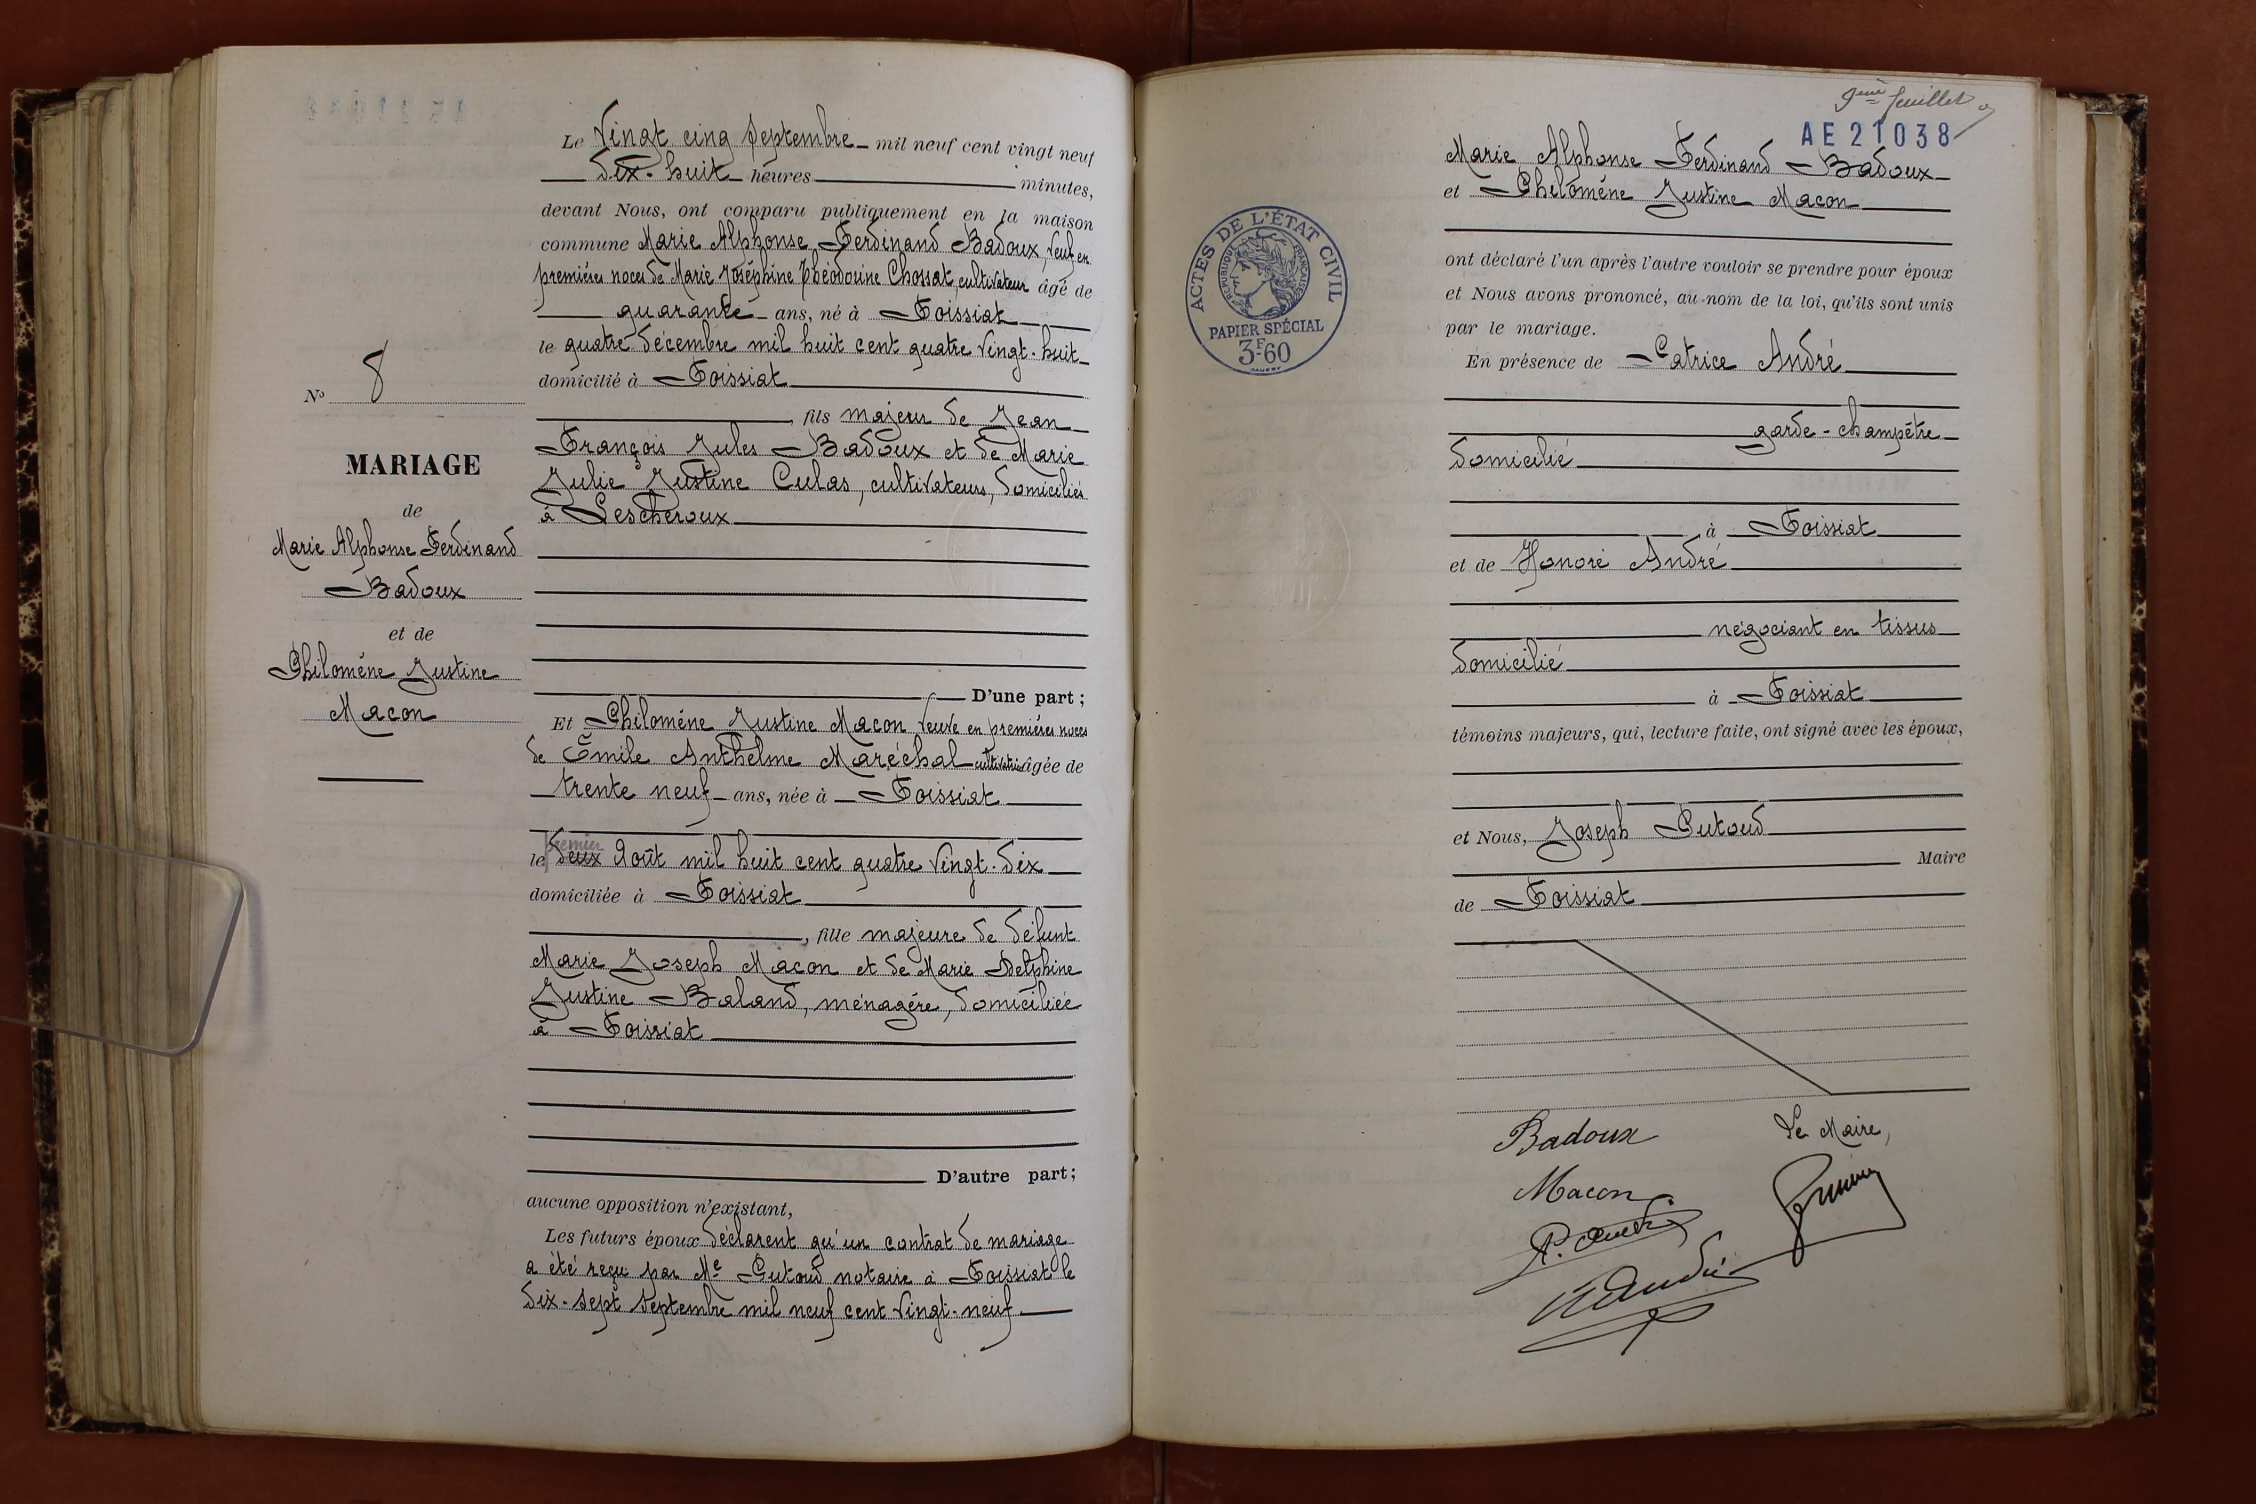 Le Vingt cinq Septembre mil neuf cent vingt neuf
dix-huit heures minutes,
devant Nous, ont comparu publiquement en la maison
commune Marie Alphonse Ferdinand Badoux, veuf en
premières noces de Marie Joséphine Théodorine Chossat, cultivateur âgé de
quarante ans, né à Foissiat
le quatre décembre mil huit cent quatre vingt-huit
domicilié à Foissiat
N° 8
, fils majeur de Jean
François Jules Badoux et de Marie
Julie Justine Culas, cultivateurs, domiciliés
à Lescheroux
MARIAGE
de
Marie Alphonse Ferdinand
Badoux
et de
Philomène Justine
Macon
D'une part ;
Et Philomène Justine Macon veuve en premières noces
de Émile Anthelme Maréchal cultivatrice âgée de
trente neuf ans, née à Foissiat
premier
le deux Août mil huit cent quatre vingt-dix
domiciliée à Foissiat
, fille majeure de défunt
Marie Joseph Macon et de Marie Delphine
Justine Baland, ménagère, domiciliée
à Foissiat
D'autre part ;
aucune opposition n'existant,
Les futurs époux déclarent qu'un contrat de mariage
a été reçu par Me Putoud notaire à Foissiat le
dix-sept septembre mil neuf cent vingt-neuf
9ème feuillet
AE 21038
Marie Alphonse Ferdinand Badoux
et Philomène Justine Macon
ACTES DE L'ÉTAT CIVIL
RÉPUBLIQUE FRANÇAISE
PAPIER SPÉCIAL
3F60
ont déclaré l'un après l'autre vouloir se prendre pour époux
et Nous avons prononcé, au nom de la loi, qu'ils sont unis
par le mariage.
En présence de Patrice André
garde-champêtre
domicilié
à Foissiat
et de Honoré André
négociant en tissus
domicilié
à Foissiat
témoins majeurs, qui, lecture faite, ont signé avec les époux,
et Nous, Joseph Putoud
Maire
de Foissiat
Badoux
Le Maire,
Macon
P. André
H André